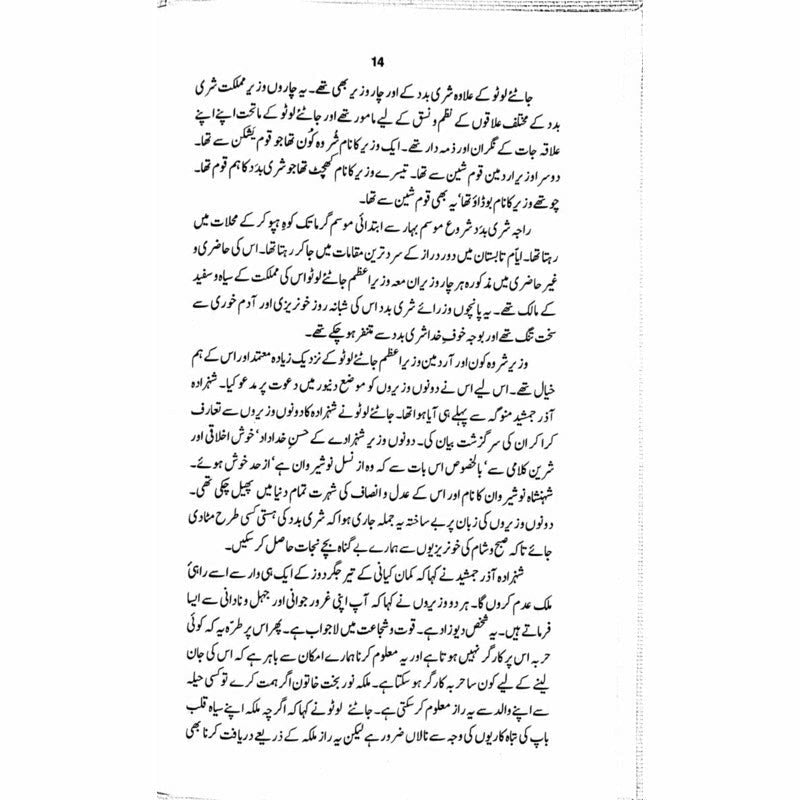 14
جاٹئے لوٹو کے علاوہ شری بدد کے اور چار وزیر بھی تھے۔ یہ چاروں وزیر مملکت شری
بدد کے مختلف علاقوں کے نظم و نسق کے لیے مامور تھے اور جاٹئے لوٹو کے ماتحت اپنے اپنے
علاقہ جات کے نگران اور ذمہ دار تھے۔ ایک وزیر کا نام شُروہ کُون تھا جو قوم یَشکن سے تھا۔
دوسرا وزیر اردمین قوم شین سے تھا۔ تیسرے وزیر کا نام کھچٹ تھا جو شری بدد کا ہم قوم تھا۔
چوتھے وزیر کا نام بوڈاؤ تھا‘ یہ بھی قوم شین سے تھا۔
راجہ شری بدد شروع موسم بہار سے ابتدائی موسم گرما تک کوہِ ہپو کر کے محلات میں
رہتا تھا۔ ایامِ تابستان میں دور دراز کے سرد ترین مقامات میں جا کر رہتا تھا۔ اس کی حاضری و
غیر حاضری میں مذکورہ ہر چار وزیران معہ وزیر اعظم جاٹئے لوٹو اس کی مملکت کے سیاہ و سفید
کے مالک تھے۔ یہ پانچوں وزرائے شری بدد اس کی شبانہ روز خونریزی اور آدم خوری سے
سخت تنگ تھے اور بوجہ خوفِ خدا شری بدد سے متنفر ہو چکے تھے۔
وزیر شروہ کون اور آردمین وزیر اعظم جاٹئے لوٹو کے نزدیک زیادہ معتمد اور اس کے ہم
خیال تھے۔ اس لیے اس نے دونوں وزیروں کو موضع دنیور میں دعوت پر مدعو کیا۔ شہزادہ
آذر جمشید منوگہ سے پہلے ہی آیا ہوا تھا۔ جاٹئے لوٹو نے شہزادہ کا دونوں وزیروں سے تعارف
کرا کر ان کی سرگزشت بیان کی۔ دونوں وزیر شہزادے کے حسنِ خداداد‘ خوش اخلاقی اور
شرین کلامی سے‘ بالخصوص اس بات سے کہ وہ از نسل نوشیروان ہے‘ از حد خوش ہوئے۔
شہنشاہ نوشیروان کا نام اور اس کے عدل و انصاف کی شہرت تمام دنیا میں پھیل چکی تھی۔
دونوں وزیروں کی زبان پر بے ساختہ یہ جملہ جاری ہوا کہ شری بدد کی ہستی کسی طرح مٹا دی
جائے تا کہ صبح و شام کی خونریزیوں سے ہمارے بے گناہ بچے نجات حاصل کر سکیں۔
شہزادہ آذر جمشید نے کہا کہ کمان کیانی کے تیر جگر دوز کے ایک ہی وار سے اسے راہیٔ
ملک عدم کروں گا۔ ہر دو وزیروں نے کہا کہ آپ اپنی غرور جوانی اور جہل و نادانی سے ایسا
فرماتے ہیں۔ یہ شخص دیوزاد ہے۔ قوت و شجاعت میں لاجواب ہے۔ پھر اس پر طرّہ یہ کہ کوئی
حربہ اس پر کارگر نہیں ہوتا ہے اور یہ معلوم کرنا ہمارے امکان سے باہر ہے کہ اس کی جان
لینے کے لیے کون سا حربہ کارگر ہو سکتا ہے۔ ملکہ نور بخت خاتون اگر ہمت کرے تو کسی حیلہ
سے اپنے والد سے یہ راز معلوم کر سکتی ہے۔ جاٹئے لوٹو نے کہا کہ اگرچہ ملکہ اپنے سیاہ قلب
باپ کی تباہ کاریوں کی وجہ سے نالاں ضرور ہے لیکن یہ راز ملکہ کے ذریعے دریافت کرنا بھی